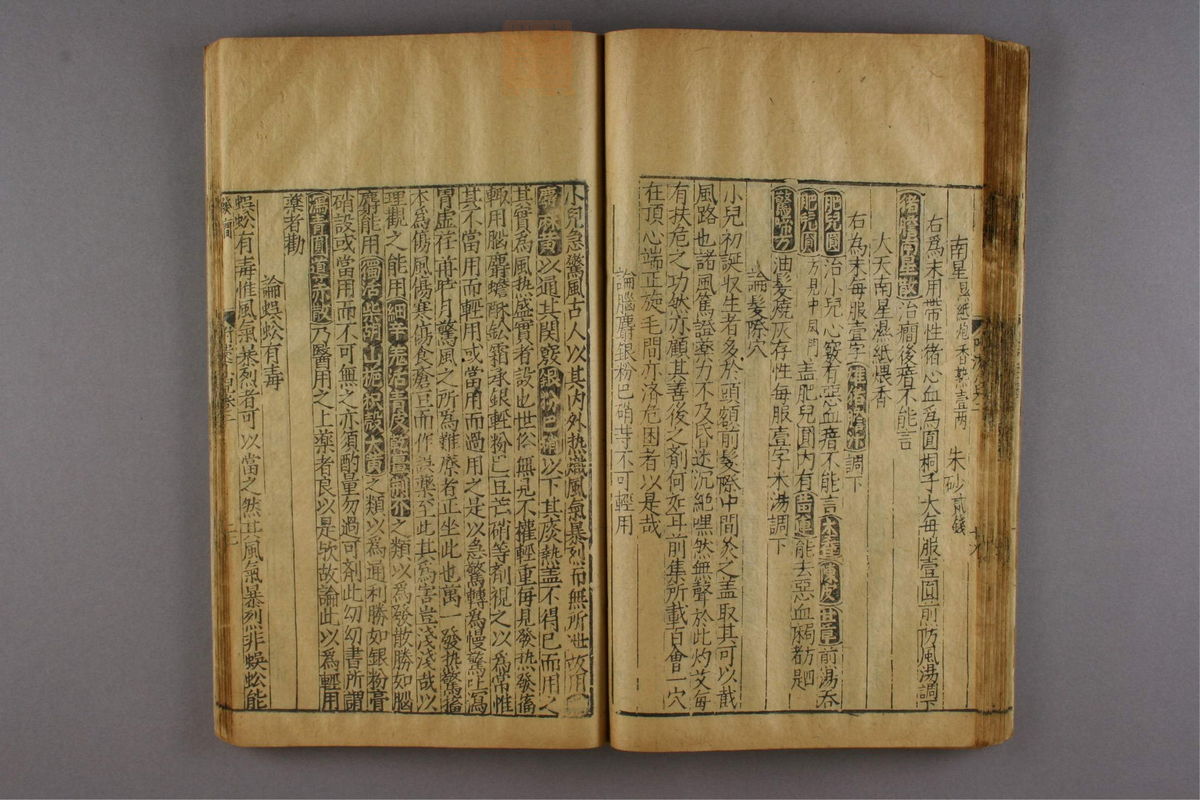 南星 濕紙炮香熟壹兩 朱砂 貳錢
右爲末用帶性猪心血為圓桐子大每服壹圓前防風湯調下
治癇後瘖不能言
大天南星濕紙煨香
右為末每服壹字 調下
肥兒圓 治小兒心竅有惡血瘖不能言 木香 陳皮 甘草 前湯吞
肥兒圓 方見中風門 盖肥兒圓內有黃連能去惡血 是
油髮燒灰存性每服壹字木湯調下
論髮際穴
小兒初誕収生者多於頭額前髮際中間灸之盖取其可以截
風路也諸風篤證藥力不及氏迷沉絕嘿然無聲於此灼艾每
有扶危之功然亦顧其善後之劑何如耳前集所載百會一穴
在頂心端正旋毛間亦洛危困者以是哉
論腦麝銀粉巴硝等不可輕用
小兒急驚風古人以其內外热熾風氣暴烈而無所泄故用
以通其関竅銀粉巴硝以下其痰熱盖不得已而用之
其實為風热盛實者設也世俗無見不權輕重每見發热發搐
輙用腦麝蟾酥鈆霜水銀輕粉巴豆芒硝等劑視之以為常惟
其不當用而輕用或當用而過用之是以急驚轉為慢驚吐瀉
胃虛荏苒時月驚風之所為難療者正坐此也萬一發热驚搐
本為傷風傷寒傷食瘡豆而作誤藥至此其為害豈淺淺哉以
理觀之能用細辛羌活青皮 之類以為發散勝如腦
麝能用獨活柴胡山梔枳殼大黃之類以為通利勝如銀粉膏
硝設或當用而不可無之亦須酌量勿過可劑此幼幼書所謂
青圓導赤散乃醫用之上藥者良以是欤故論此以爲輕用
藥者勸
論蜈蚣有毒
蜈蚣有毒惟風氣暴烈者可以當之然其風氣暴烈非蜈蚣能